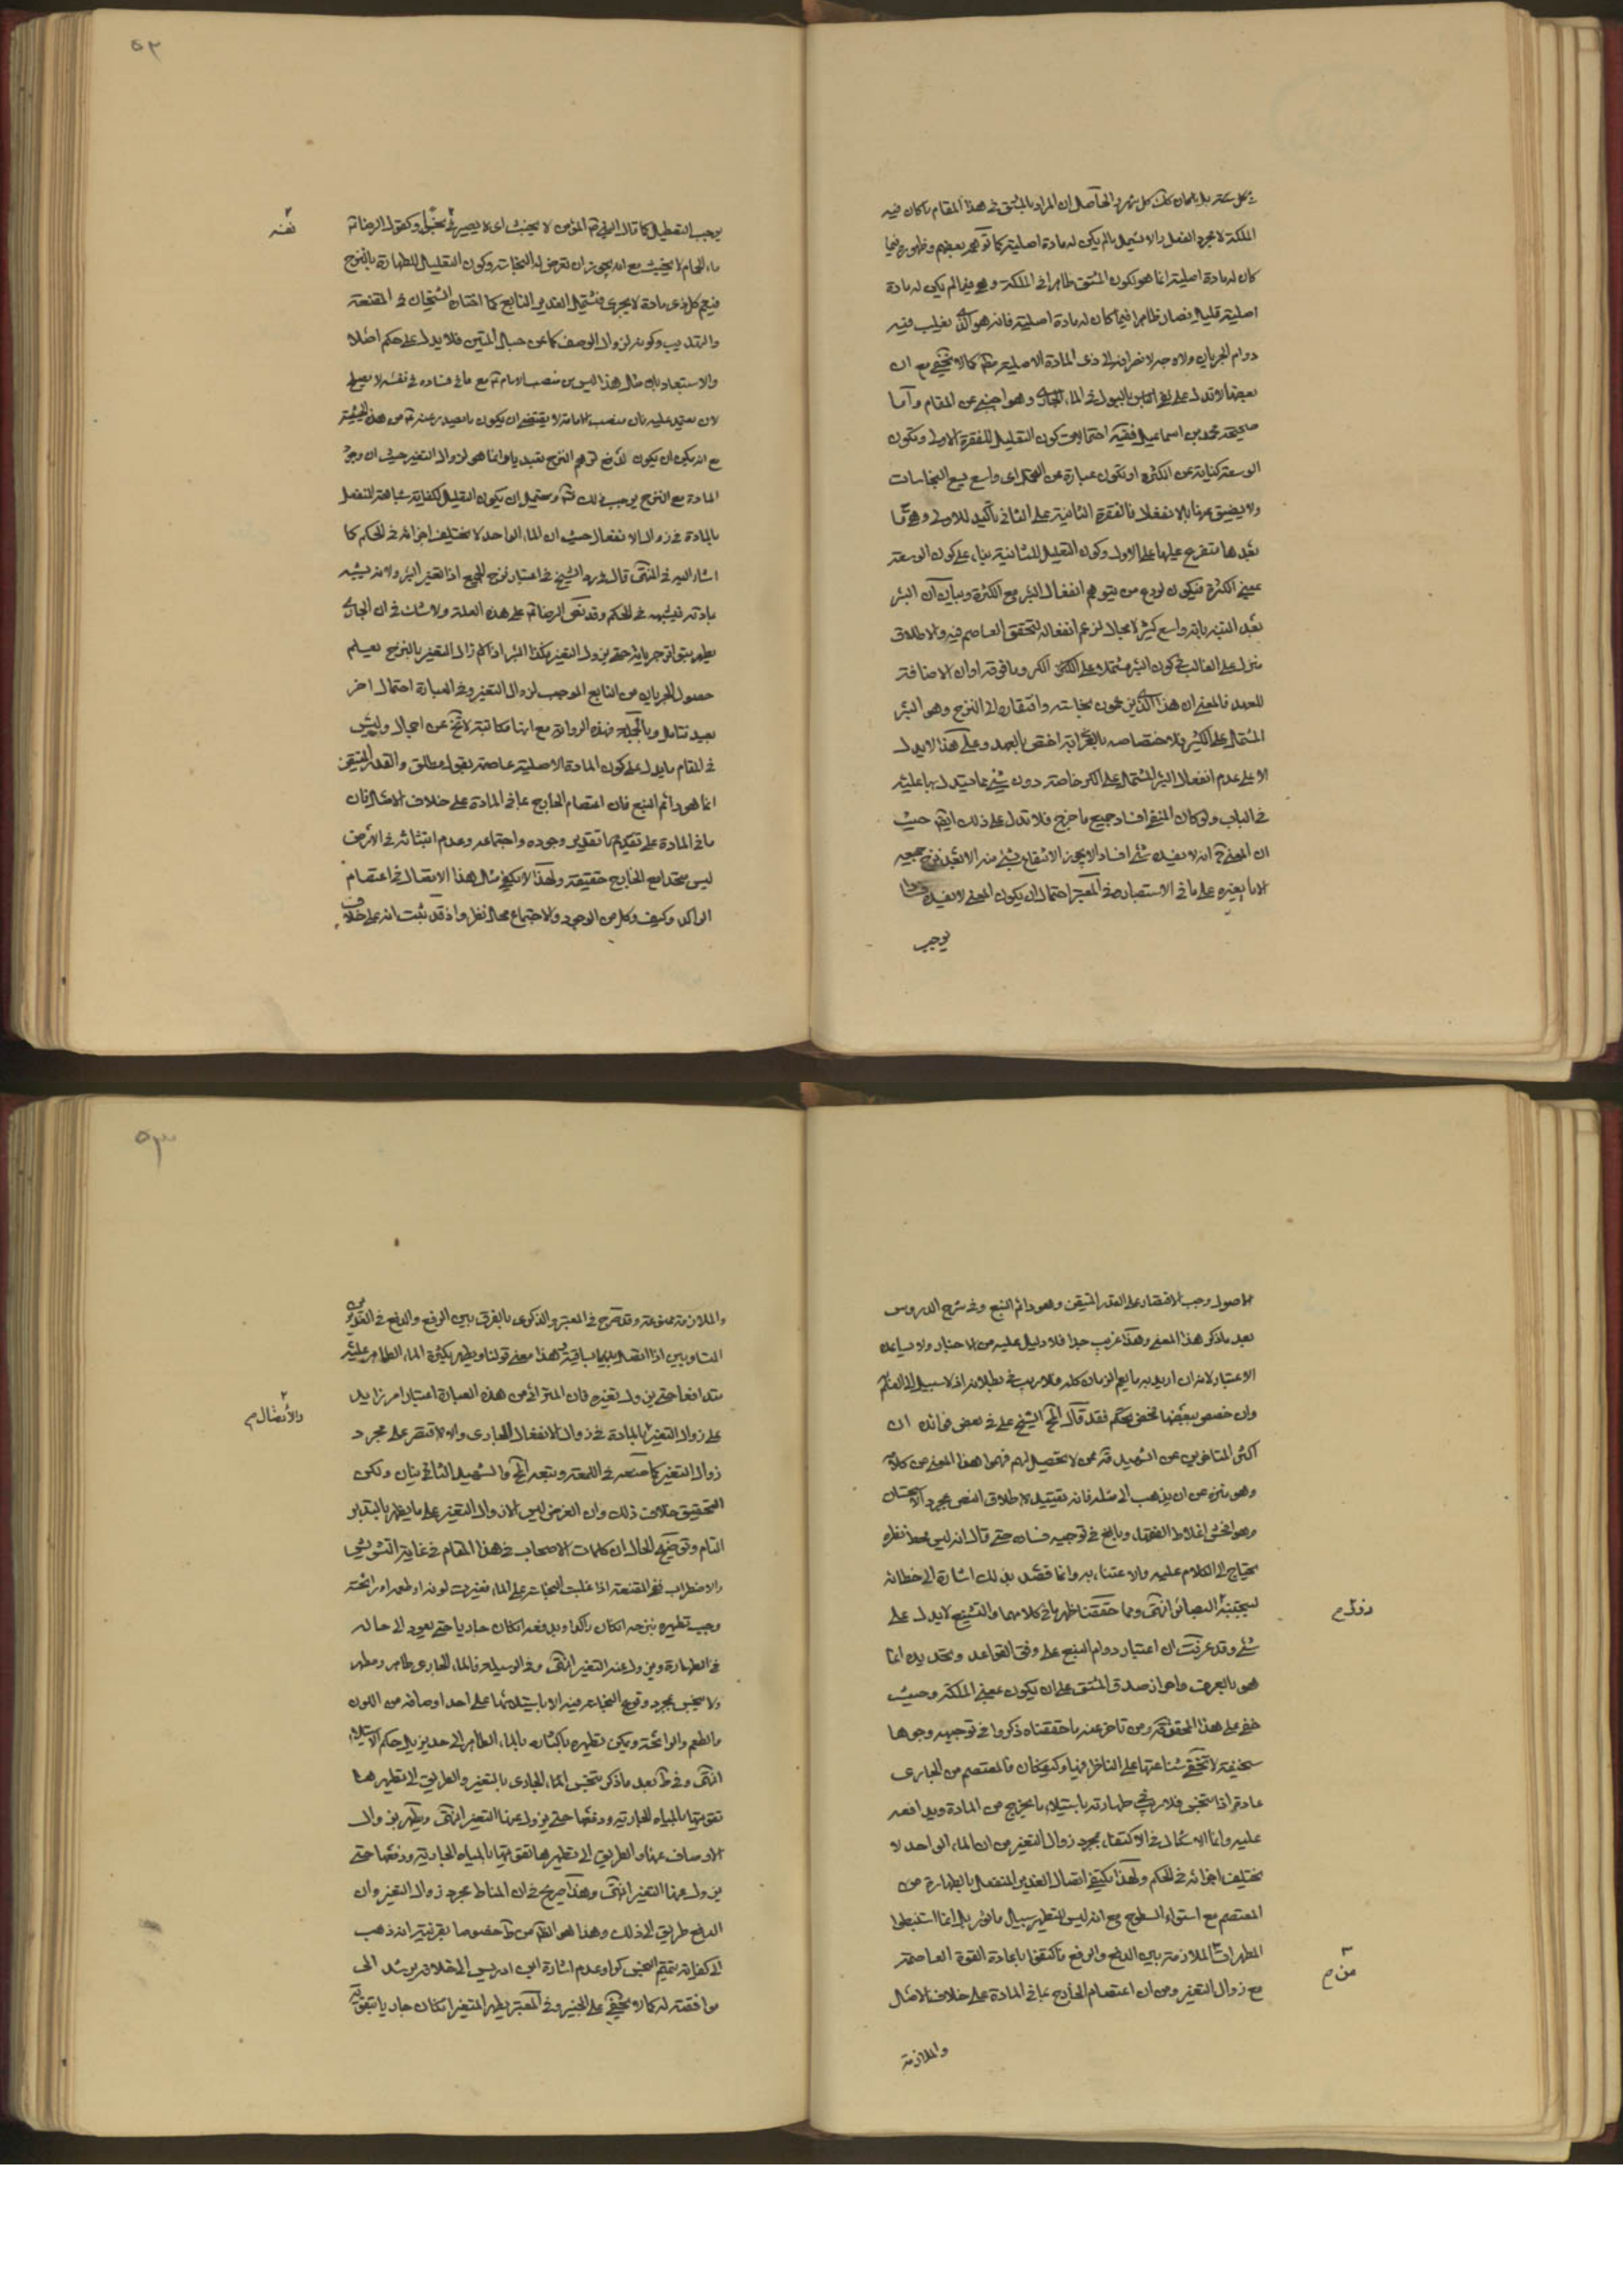 الملكة لا مجرد الفعل والا لشمل مالم يكن له مادة اصلية كما توهمه بعضهم وظهوره فيما
كان له مادة اصلية انما هو لكون المشتق ظاهرا في الملكة وهو فيما لم يكن له مادة
اصلية قليل فصار ظاهرا فيما كان له مادة اصلية فانه هو الذي يغلب فيه
دوام الجريان ولا وجه لانصرافه الى ذي المادة الاصلية كما لا يخفى مع ان
بعضها لا تدل على نفي الباس بالبول في الماء الجاري وهو اجنبي عن المقام واما
صحيحة محمد بن اسماعيل ففيه احتمالات كون التعليل للفقرة الاولى وتكون
الوسعة كناية عن الكثرة او تكون عبارة عن التحمل اي واسع يسع النجاسات
ولا يضيق عنها بالانفعال فالفقرة الثانية على الثاني تأكيد للاولى وهو وما
بعدها متفرع عليها على الاول وكون التعليل للثانية بناء على كون الوسعة
بمعنى الكثرة فيكون لردع من يتوهم انفعال البئر مع الكثرة وبيان ان البئر
بعد التنبه بانه واسع كثير لا مجال لزعم انفعاله لتحقق العاصم فيه والاطلاق
منزل على الغالب في كون البئر مشتملا على الكر وما فوقه او ان الاضافة
للعهد فالمعنى ان هذا الذي يزعمون نجاسته وافتقاره الى النزح وهو البئر
المشتمل على الكثير فلا اختصاصه بالبئر اختص بالعهد وعلى هذا لا يدل
الا على عدم انفعال البئر المشتمل على الكر خاصة دون شيء مما يستدل بها عليه
في الباب ولو كان المنفي افساد جميع ما خرج فلا تدل على ذلك ايضا حيث
ان المعنى ح انه لا يفسده شيء افسادا لا يجوز الانتفاع بشيء منه الا بعد نزح جميعه
الا ما يغيره على ما في الاستبصار وفي المعتبر احتمال ان يكون المعنى لا يفسده فسادا
يوجب
يوجب التعطيل كما قال النبي المؤمن لا يخبث اي لا يصير في نفسه خبيثا وكقول الرضا
ماء الحمام لا يخبث مع انه يجوز ان تعرض له النجاسة وكون التعليل للطهارة بالنزح
نفسه
فيعم كل ذي مادة لا يجرى فيشمل الغدير النابع كما اختاره الشيخان في المقنعة
والتهذيب وكونه لزوال الوصف كما عن حبل المتين فلا يدل على حكم اصلا
والاستبعاد بان مثل هذا ليس من منصب الامام مع ما في فساده في نفسه لا يصلح
لان يعتمد عليه فان منصب الامامة لا يقتضي ان يكون ما يصدر عنه من هذه الحيثية
مع انه يمكن ان يكون لدفع توهم النزح تعبديا وانما هو لزوال التغير حيث ان وجود
المادة مع النزح يوجب ذلك ويحتمل ان يكون التعليل لكفاية مشابهة المنفعل
بالمادة في زوال الانفعال حيث ان الماء الواحد لا يختلف اجزائه في الحكم كما
اشار اليه في المنتهى قال في رد الشيخ في اعتبار نزح الجميع اذا تغير البئر ولانه يشبه
بمادته فيشبهه في الحكم وقد نص الرضا على هذه العلة ولا شك في ان الجاري
يطهر بتواتر جريانه حتى يزول التغير فكذا البئر اذا زال التغير بالنزح يعلم
حصول الجريان من النابع الموجب لزوال التغير وفي العبارة احتمال اخر
بعيد فتامل وبالجملة فهذه الرواية مع انها مكاتبة لا تخ عن اجمال وليس
في المقام ما يدل على كون المادة الاصلية عاصمة بقول مطلق والقدر المتيقن
انما هو دائم النبع فان اعتصام الخارج بما في المادة على خلاف الاصل فان
ما في المادة على تقدير وجوده واجتماعه وعدم انبثاثه في الارض
ليس متحدا مع الخارج حقيقة ولهذا لا يكفي مثل هذا الاتصال في اعتصام
الراكد وكيف وكل من الوجود والاجتماع محال نظر واذ قد ثبت انه على خلاف
الاصول وجب الاقتصار على القدر المتيقن وهو دائم النبع وفي شرح الدروس
بعد ما ذكر هذا المعنى وهذا غريب جدا فلا دليل عليه من الاخبار ولا يساعده
الاعتبار لانه ان اريد به ما يعم الزمان كله فلا ريب في بطلانه اذ لا سبيل الى العلم
وان خصص ببعضها فمحض تحكم فقد قال المحقق الشيخ علي في بعض فوائده ان
اكثر المتاخرين عن الشهيد ممن لا تحصيل لهم فهموا هذا المعنى من كلامه
وهو منزه عن ان يذهب الى مثله فانه تقييد لاطلاق النص بمجرد الاستحسان
وهو افحش اغلاط الفقهاء وبالغ في توجيه فساده حتى قال انه ليس محط نظره
يحتاج الى الكلام عليه والاعتناء به وانما قصد بذلك اشارة الى خطائه
ليجتنبه البصائر انتهى ومما حققنا ظهر ما في كلامهما والتشنيع لا يدل على
شيء وقد عرفت ان اعتبار دوام النبع على وفق القواعد وتحديده انما
هو بالعرف واحراز صدق المشتق على ان يكون بمعنى الملكة وحيث
خفى على هذا المحقق ومن تاخر عنه ما حققناه ذكروا في توجيهه وجوها
سخيفة لا تخفى شناعتها على الناظر فيها وكيف كان فالمعتصم من الجاري
من م
عادة اذا تنجس فلا ريب في طهارته باستيلاء ما يخرج من المادة وتدافعه
عليه وانما الاشكال في الاكتفاء بمجرد زوال التغير من ان الماء الواحد لا
يختلف اجزائه في الحكم ولهذا يكتفى اتصال الغدير المنفعل بالطهارة من
المعتصم مع استواء السطوح مع انه ليس للتطهير سبيل ماثور بل انما استنبطوا
المطهرات الملازمة بين الدفع والرفع فاكتفوا باعادة القوة العاصمة
مع زوال التغير ومن ان اعتصام الخارج بما في المادة على خلاف الامثال
والملازمة
والملازمة ممنوعة وقد صرح في المعتبر والذكرى بالفرق بين الرفع والدفع في الغديرين
والاتصال م
متدافعا حتى يزول تغيره فان المتراءى من هذه العبارة اعتبار امر زايد
على زوال التغير بالمادة في زوال الانفعال للجاري والا لاقتصر على مجرد
زوال التغير كما صنعه في اللمعة وتبعه المحقق والشهيد الثانيان ولكن
التحقيق خلاف ذلك وان الغرض ليس الا زوال التغير على ما يظهر بالتدبر
التام وتوضيح الحال ان كلمات الاصحاب في هذا المقام في غاية التشويش
والاضطراب ففي المقنعة اذا غلبت النجاسة على الماء فغيرت لونه او طعمه او رائحته
وجب تطهيره بنزحه ان كان راكدا وبدفعه ان كان جاريا حتى يعود الى حاله
في الطهارة ويزول عنه التغير انتهى وفي الوسيلة فالماء الجاري طاهر ومطهر
ولا ينجس بمجرد وقوع النجاسة فيه الا باستيلائها على احد اوصافه من اللون
والطعم والرائحة ويمكن تطهيره باكثار الماء الطاهر الى حد يزيل حكم الاستيلاء
انتهى وفي ط بعد ما ذكر تنجس الماء الجاري بالتغير والطريق الى تطهيرها
تقويتها بالمياه الجارية ودفعها حتى يزول عنها التغير انتهى ويطهر بزوال
الاوصاف عنها والطريق الى تطهيرها تقويتها بالمياه الجارية ودفعها حتى
يزول عنها التغير انتهى وهذا صريح في ان المناط مجرد زوال التغير وان
الدفع طريق الى ذلك وهذا هو الظاهر من ط خصوصا بقرينة انه ذهب
الى كفاية تتميم النجس كرا وعدم اشارة ابن ادريس الى خلافه يرشد الى
موافقته له كما لا يخفى على الخبير وفي المعتبر يطهر المتغير ان كان جاريا بتقويته